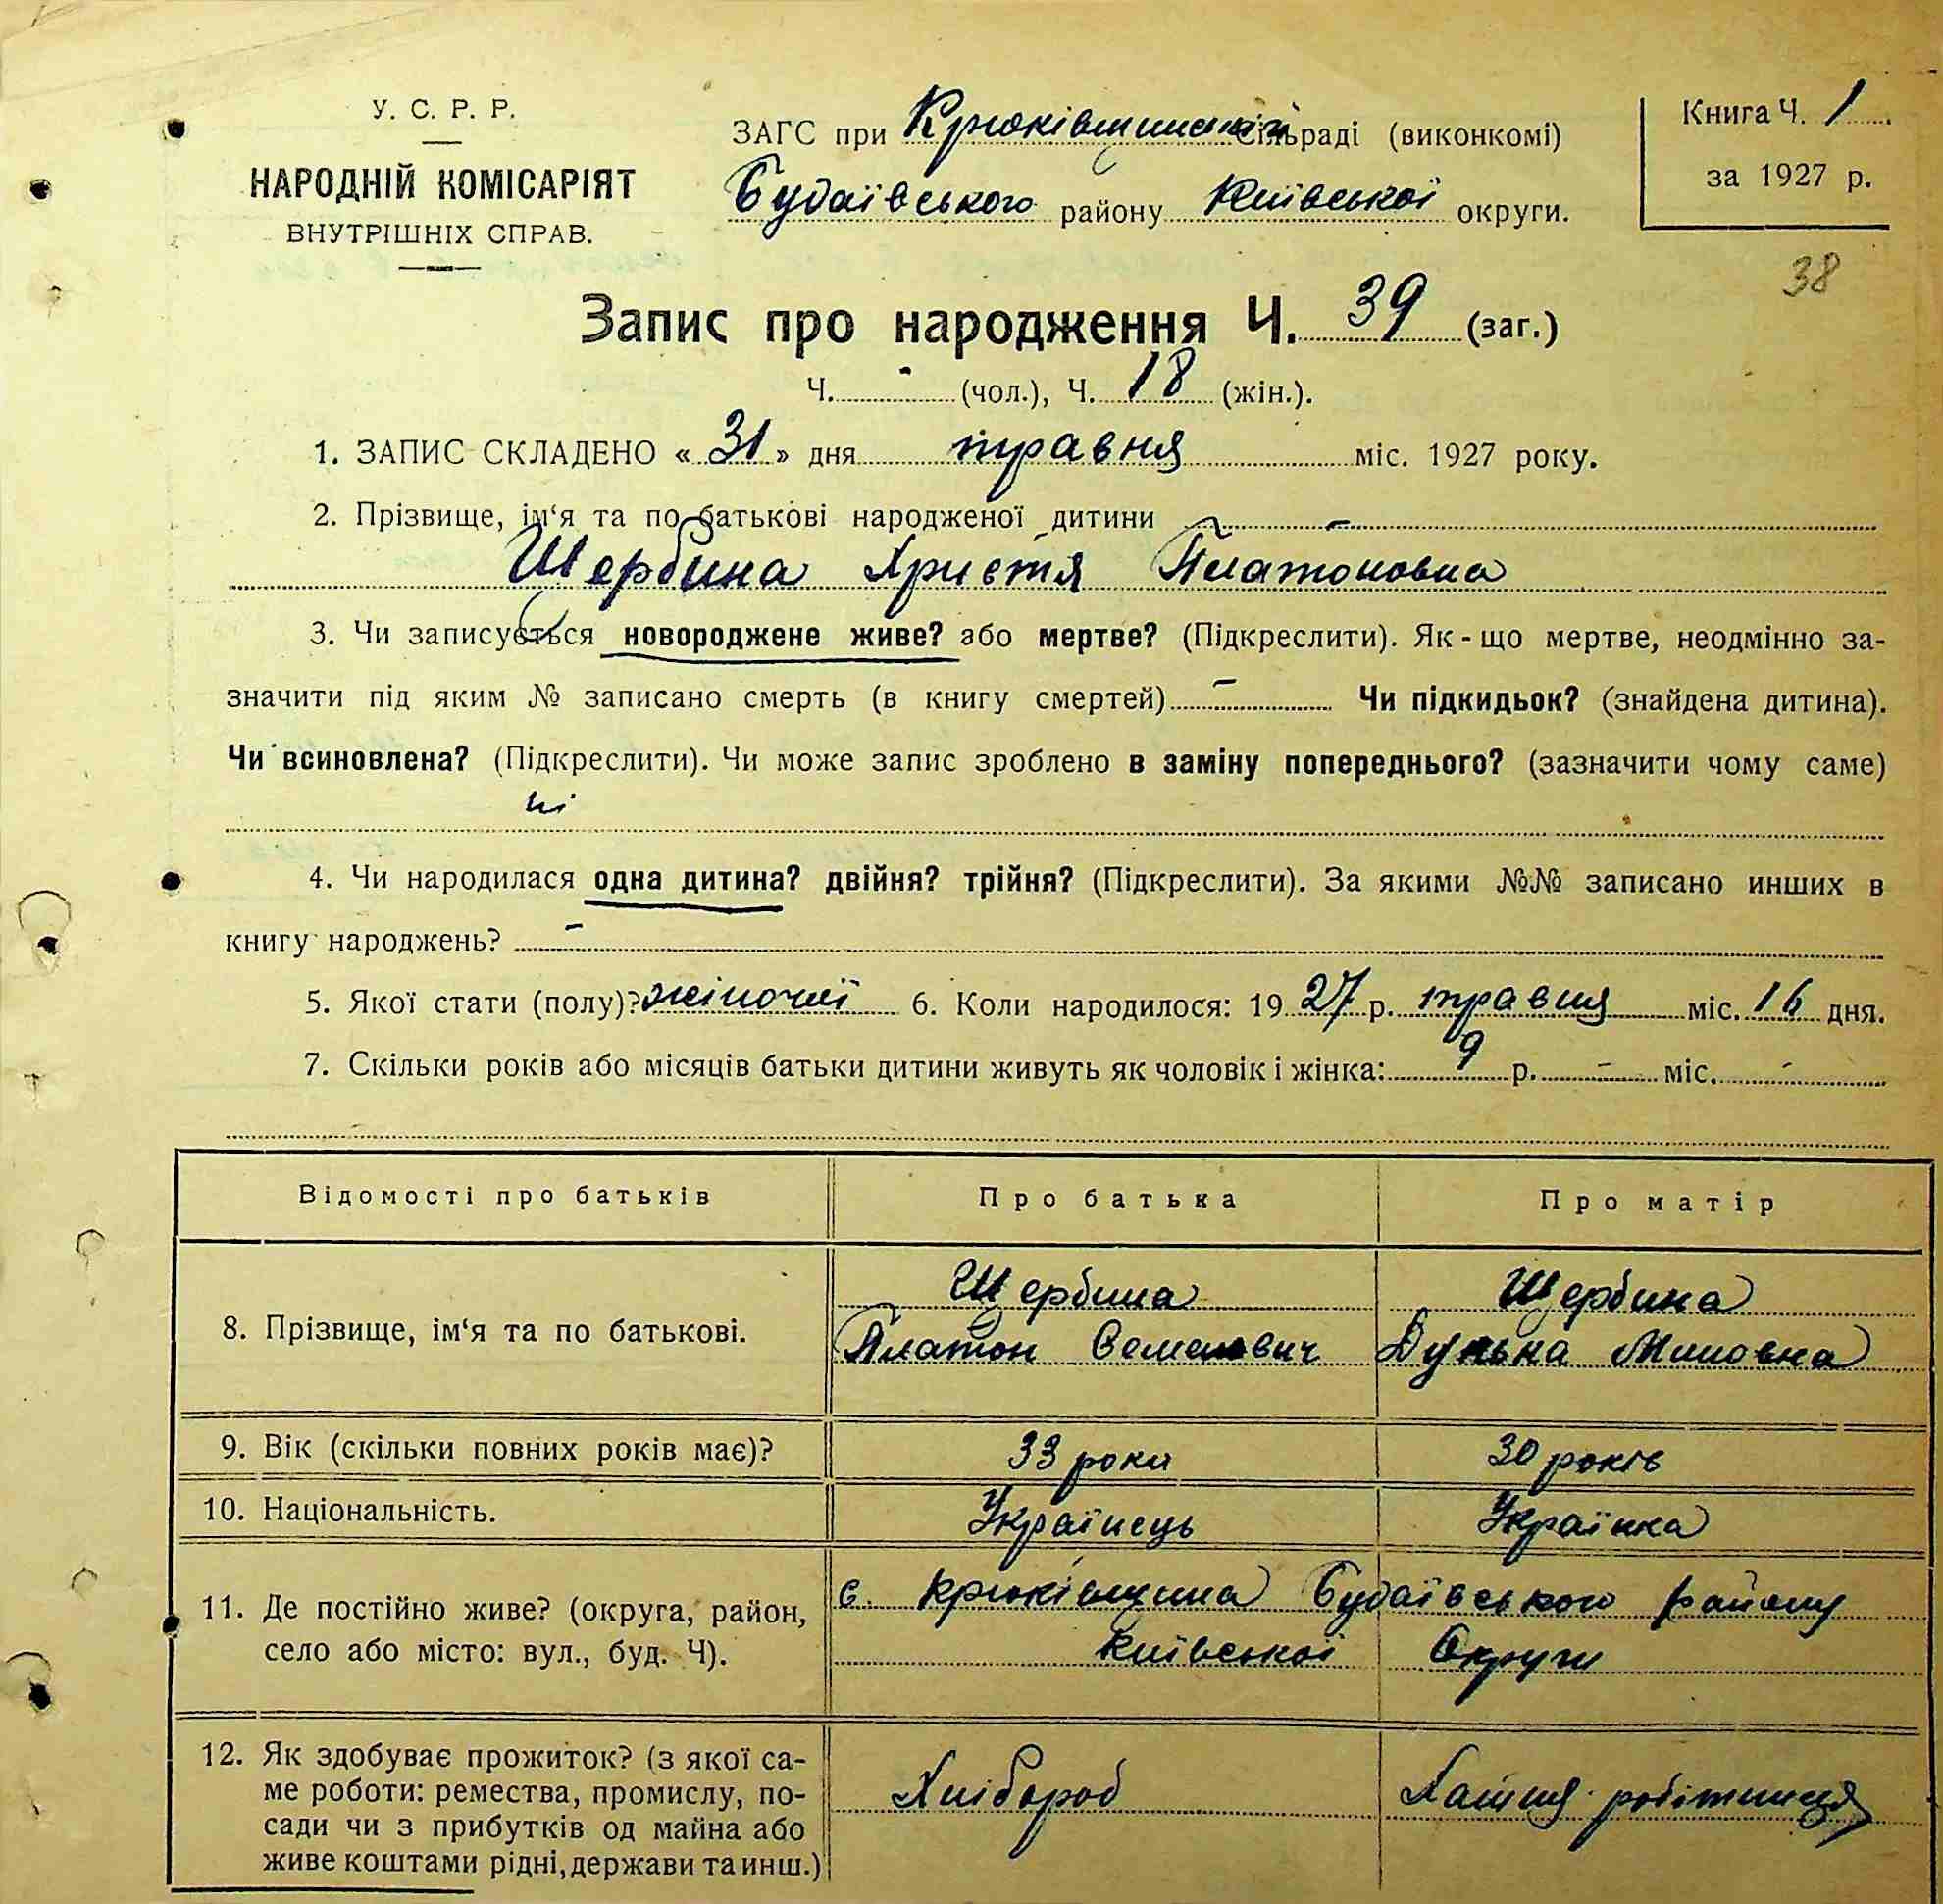 У. С. Р. Р.
НАРОДНІЙ КОМІСАРІЯТ
ВНУТРІШНІХ СПРАВ.
ЗАГС при Крюківщинській сільраді (виконкомі)
Будаївського району Київської округи.
Книга Ч. 1
за 1927 р.
38
Запис про народження Ч. 39 (заг.)
Ч. - (чол.), Ч. 18 (жін.).
1. ЗАПИС СКЛАДЕНО « 31 » дня травня міс. 1927 року.
2. Прізвище, ім‘я та по батькові народженої дитини -
Щербина Христя Платоновна
3. Чи записується новороджене живе? або мертве? (Підкреслити). Як - що мертве, неодмінно за-
значити під яким № записано смерть (в книгу смертей) - Чи підкидьок? (знайдена дитина).
Чи всиновлена? (Підкреслити). Чи може запис зроблено в заміну попереднього? (зазначити чому саме)
ні
4. Чи народилася одна дитина? двійня? трійня? (Підкреслити). За якими №№ записано инших в
книгу народжень? -
5. Якої стати (полу)? жіночої 6. Коли народилося: 19 27 р. травня міс. 16 дня.
7. Скільки років або місяців батьки дитини живуть як чоловік і жінка: 9 р. - міс. -
Відомості про батьків Про батька Про матір
8. Прізвище, ім‘я та по батькові.
Щербина Щербина
Платон Семенович Мановна
9. Вік (скільки повних років має)? 33 роки 30 років
10. Національність. Українець Українка
11. Де постійно живе? (округа, район,
село або місто: вул., буд. Ч).
с. Крюківщина Будаївського району
Київської Округи
12. Як здобуває прожиток? (з якої са-
ме роботи: ремества, промислу, по-
сади чи з прибутків од майна або
живе коштами рідні, держави та инш.)
Хлібороб Хатня робітниця